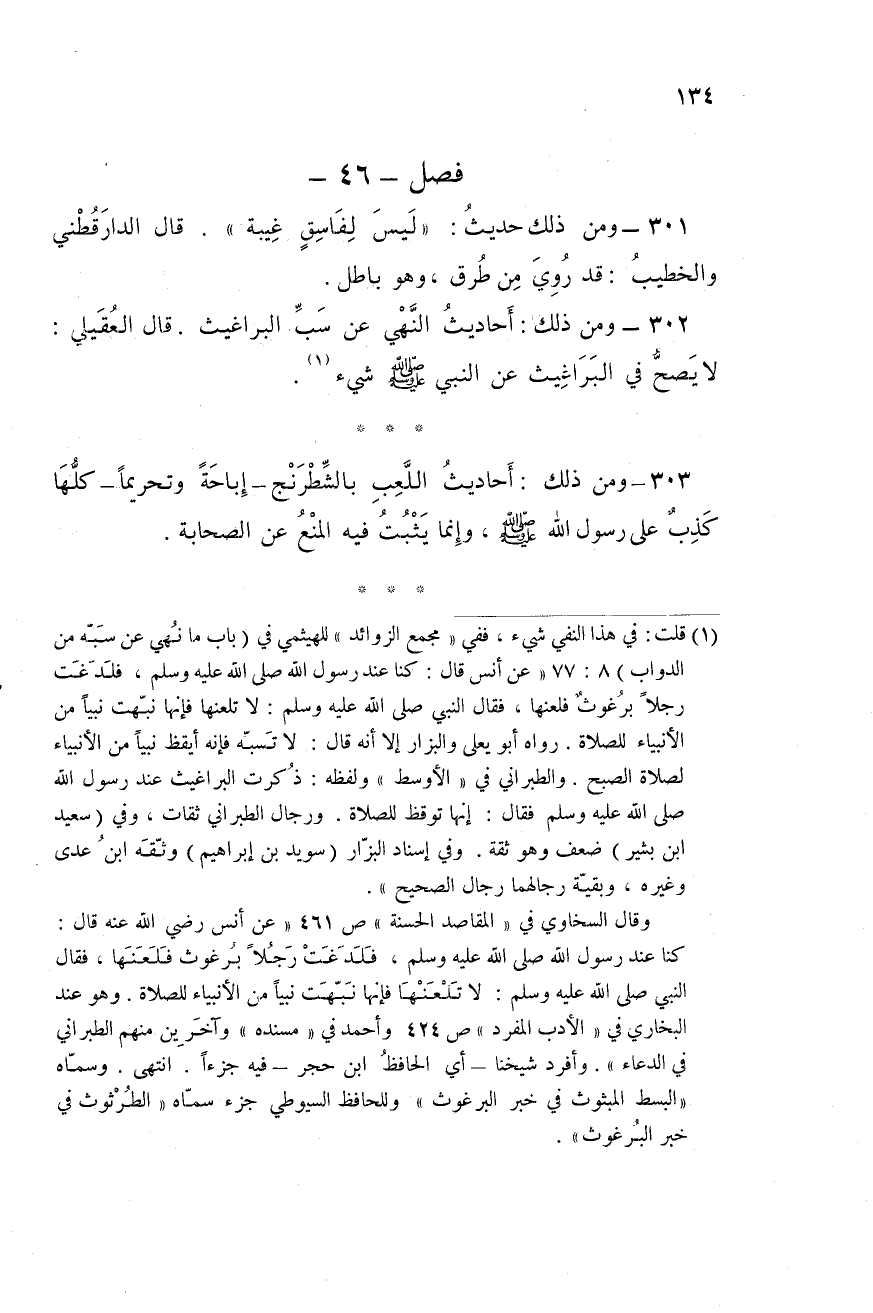 ١٣٤
فصل – ٤٦ –
٣٠١ – ومن ذلك حديثُ : « لَيسَ لِفَاسِقٍ غِيبة » . قال الدارَقُطْني
والخطيبُ : قد رُوِيَ مِن طُرق ، وهو باطل .
٣٠٢ – ومن ذلك : أَحاديثُ النَّهْي عن سَبِّ البراغيث . قال العُقَيلي :
لا يَصحُّ في البَرَاغِيث عن النبي ﷺ شيء (١) .
* * *
٣٠٣ – ومن ذلك : أَحاديثُ اللَّعِبِ بالشِّطْرَنْج – إباحَةً وتحريماً – كلُّهَا
كَذِبٌ على رسول الله ﷺ ، وإنما يَثْبُتُ فيه المنْعُ عن الصحابة .
* * *
(١) قلت : في هذا النفي شيء ، ففي « مجمع الزوائد » للهيثمي في ( باب ما نُهي عن سَبّه من
الدواب ) ٨ : ٧٧ « عن أنس قال : كنا عند رسول الله صلى الله عليه وسلم ، فلَدَغَت
رجلاً برُغوثٌ فلعنها ، فقال النبي صلى الله عليه وسلم : لا تلعنها فإنها نبّهت نبياً من
الأنبياء للصلاة . رواه أبو يعلى والبزار إلا أنه قال : لا تَسبّه فإنه أيقظ نبياً من الأنبياء
لصلاة الصبح . والطبراني في « الأوسط » ولفظه : ذُكرت البراغيث عند رسول الله
صلى الله عليه وسلم فقال : إنها توقظ للصلاة . ورجال الطبراني ثقات ، وفي ( سعيد
ابن بشير ) ضعف وهو ثقة . وفي إسناد البزّار ( سويد بن إبراهيم ) وثّقَه ابنُ عدى
وغيره ، وبقيّة رجالهما رجال الصحيح » .
وقال السخاوي في « المقاصد الحسنة » ص ٤٦١ « عن أنس رضي الله عنه قال :
كنا عند رسول الله صلى الله عليه وسلم ، فَلَدَغَتْ رَجُلاً بُرغوث فَلَعَنَها ، فقال
النبي صلى الله عليه وسلم : لا تَلْعَنْهَا فإنها نَبّهَت نبياً من الأنبياء للصلاة . وهو عند
البخاري في « الأدب المفرد » ص ٤٢٤ وأحمد في « مسنده » وآخَرِين منهم الطبراني
في الدعاء » . وأفرد شيخنا – أي الحافظُ ابن حجر – فيه جزءاً . انتهى . وسمّاه
«البسط المبثوث في خبر البرغوث » وللحافظ السيوطي جزء سمّاه « الطُرْثوث في
خبر البُرغوث» .